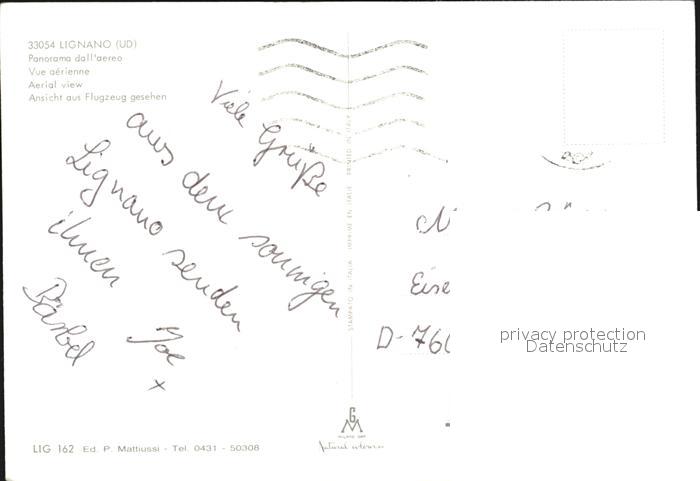 33054 LIGNANO (UD)
Panorama dall'aereo
Vue aérienne
Aerial view
Ansicht aus Flugzeug gesehen
Viele Grüße
aus dem sonnigen
Lignano senden
ihnen
Bärbel
x
STAMPATO IN ITALIA IMPRIMÉ EN ITALIE PRINTED IN ITALY
Eise
D-760
privacy protection
Datenschutz
LIG 162 Ed. P. Mattiussi - Tel. 0431 - 50308